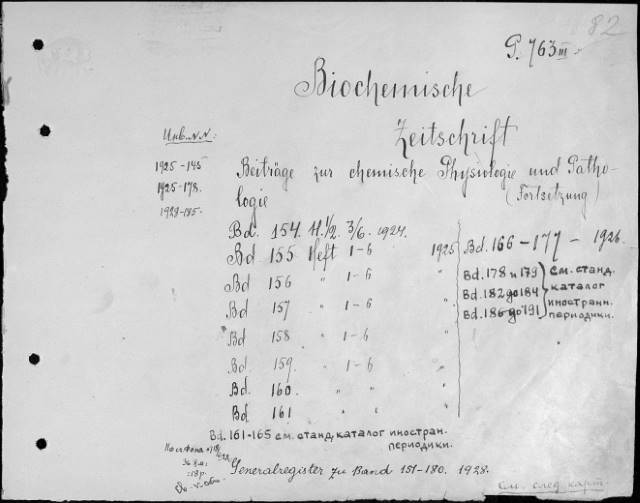 82
P. 763 III
Biochemische
Zeitschrift
Инв. N.N.:
1925-145
1925-178.
1928-185.
Beiträge zur chemische Physiologie und Patho-
logie (Fortsetzung)
Bd. 154. H. 1/2. 3/6. 1924.
Bd 155 Heft 1-6 1925
Bd 156 " 1-6 "
Bd 157 " 1-6 "
Bd 158 " 1-6 "
Bd. 159. " 1-6 "
Bd 160. " " "
Bd 161. " " "
Bd. 166-177 - 1926.
Bd. 178 и 179 } См. станд.
Bd. 182 до 184 каталог
Bd. 186 до 191 иностранн.
периодики.
Bd. 161-165 см. станд. каталог иностран.
периодики.
Generalregister zu Band 151-180. 1928.
См. след. карт.